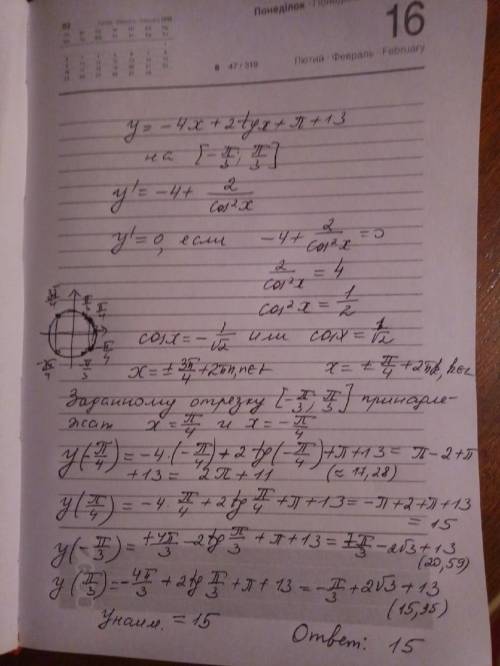 Понеділок · Понеде
16
47 / 319
Лютий · Февраль · February
y = -4x + 2tgx + π + 13
на [-π/3; π/3]
y' = -4 + 2/cos²x
y' = 0, если -4 + 2/cos²x = 0
2/cos²x = 4
cos²x = 1/2
cosx = -1/√2 или cosx = 1/√2
x = ± 3π/4 + 2πn, n∈Z x = ± π/4 + 2πk, k∈Z
Заданному отрезку [-π/3; π/3] принадле-
жат x = π/4 и x = -π/4
y(-π/4) = -4·(-π/4) + 2tg(-π/4) + π + 13 = π - 2 + π
+ 13 = 2π + 11 (≈ 17,28)
y(π/4) = -4·π/4 + 2tg π/4 + π + 13 = -π + 2 + π + 13
= 15
y(-π/3) = +4π/3 - 2tg π/3 + π + 13 = 7π/3 - 2√3 + 13
(20,59)
y(π/3) = -4π/3 + 2tg π/3 + π + 13 = -π/3 + 2√3 + 13
(15,35)
Yнаим. = 15
Ответ: 15